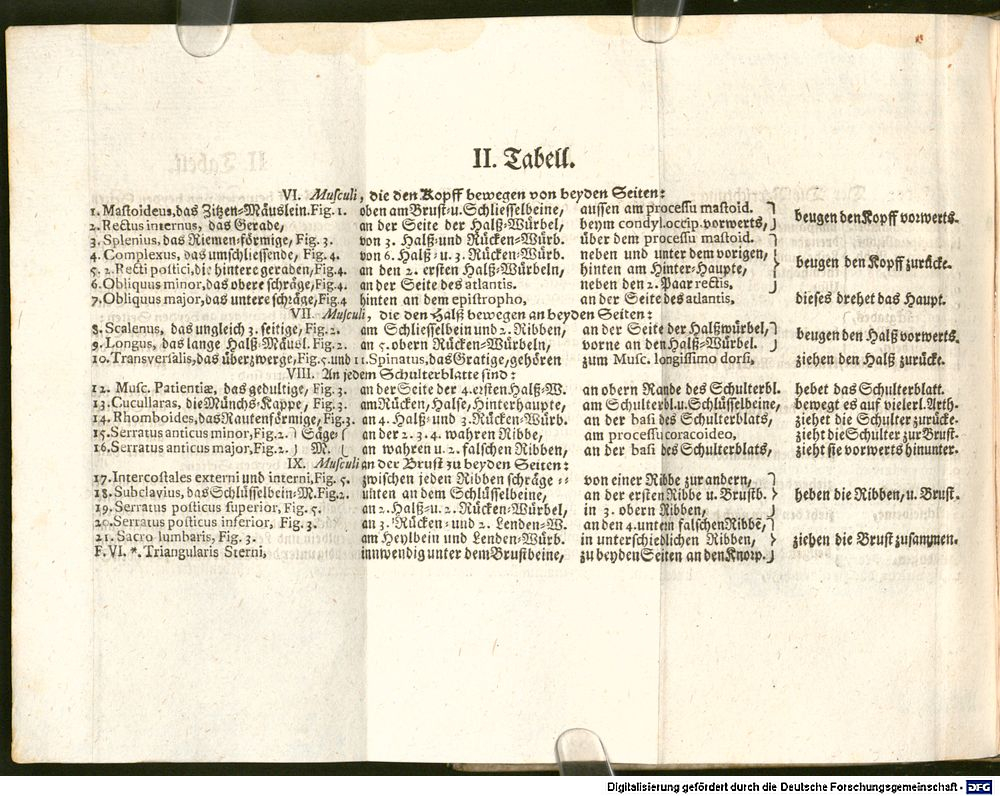 II. Tabell.
VI. Musculi, die den Kopff bewegen von beyden Seiten:
1. Mastoideus, das Zitzen-Mäuslein. Fig. 1. oben am Brust- u. Schliesselbeine, aussen am processu mastoid. } beugen den Kopff vorwerts.
2. Rectus internus, das Gerade, an der Seite der Halß-Würbel, beym condyl. occip. vorwerts, }
3. Splenius, das Riemen-förmige, Fig. 3. von 3. Halß- und Rücken-Würb. über dem processu mastoid. }
4. Complexus, das umschliessende, Fig. 4. von 6. Halß- u. 3. Rücken-Würb. neben und unter dem vorigen, } beugen den Kopff zurücke.
5. 2. Recti postici, die hintere geraden, Fig. 4. an den 2. ersten Halß-Würbeln, hinten am Hinter-Haupte, }
6. Obliquus minor, das obere schräge, Fig. 4. an der Seite des atlantis. neben den 2. Paar rectis, }
7. Obliquus major, das untere schräge, Fig. 4 hinten an dem epistropho, an der Seite des atlantis, dieses drehet das Haupt.
VII. Musculi, die den Halß bewegen an beyden Seiten:
8. Scalenus, das ungleich 3. seitige, Fig. 2. am Schliesselbein und 2. Ribben, an der Seite der Halßwürbel, } beugen den Halß vorwerts.
9. Longus, das lange Halß-Mäusl. Fig. 2. an 5. obern Rücken-Würbeln, vorne an den Halß-Würbel. }
10. Transversalis, das überzwerge, Fig. 5. und 11. Spinatus, das Gratige, gehören zum Musc. longissimo dorsi, ziehen den Halß zurücke.
VIII. An jedem Schulterblatte sind:
12. Musc. Patientiæ, das gedultige, Fig. 3. an der Seite der 4. ersten Halß-W. an obern Rande des Schulterbl. hebet das Schulterblatt.
13. Cucullaras, die Münchs-Kappe, Fig. 3. am Rücken, Halse, Hinterhaupte, am Schulterbl. u. Schlüsselbeine, bewegt es auf vielerl. Arth.
14. Rhomboides, das Rautenförmige, Fig. 3. an 4. Halß- und 3. Rücken-Würb. an der basi des Schulterblats, ziehet die Schulter zurücke.
15. Serratus anticus minor, Fig. 2. } Säge- { an der 2. 3. 4. wahren Ribbe, am processu coracoideo, zieht die Schulter zur Brust.
16. Serratus anticus major, Fig. 2. } M. { an wahren u. 2. falschen Ribben, an der basi des Schulterblats, zieht sie vorwerts hinunter.
IX. Musculi an der Brust zu beyden Seiten:
17. Intercostales externi und interni, Fig. 5. zwischen jeden Ribben schräge -- von einer Ribbe zur andern, }
18. Subclavius, das Schlüsselbein-M. Fig. 2. unten an dem Schlüsselbeine, an der ersten Ribbe u. Brustb. } heben die Ribben, u. Brust.
19. Serratus posticus superior, Fig. 5. an 2. Halß- u. 2. Rücken-Würbel, in 3. obern Ribben, }
20. Serratus posticus inferior, Fig. 3. an 3. Rücken- und 2. Lenden-W. an den 4. untern falschen Ribbē, }
21. Sacro lumbaris, Fig. 3. am Heylbein und Lenden-Würb. in unterschiedlichen Ribben, } ziehen die Brust zusammen.
F. VI. *. Triangularis Sterni, innwendig unter dem Brustbeine, zu beyden Seiten an den Knorp. }
Digitalisierung gefördert durch die Deutsche Forschungsgemeinschaft - DFG